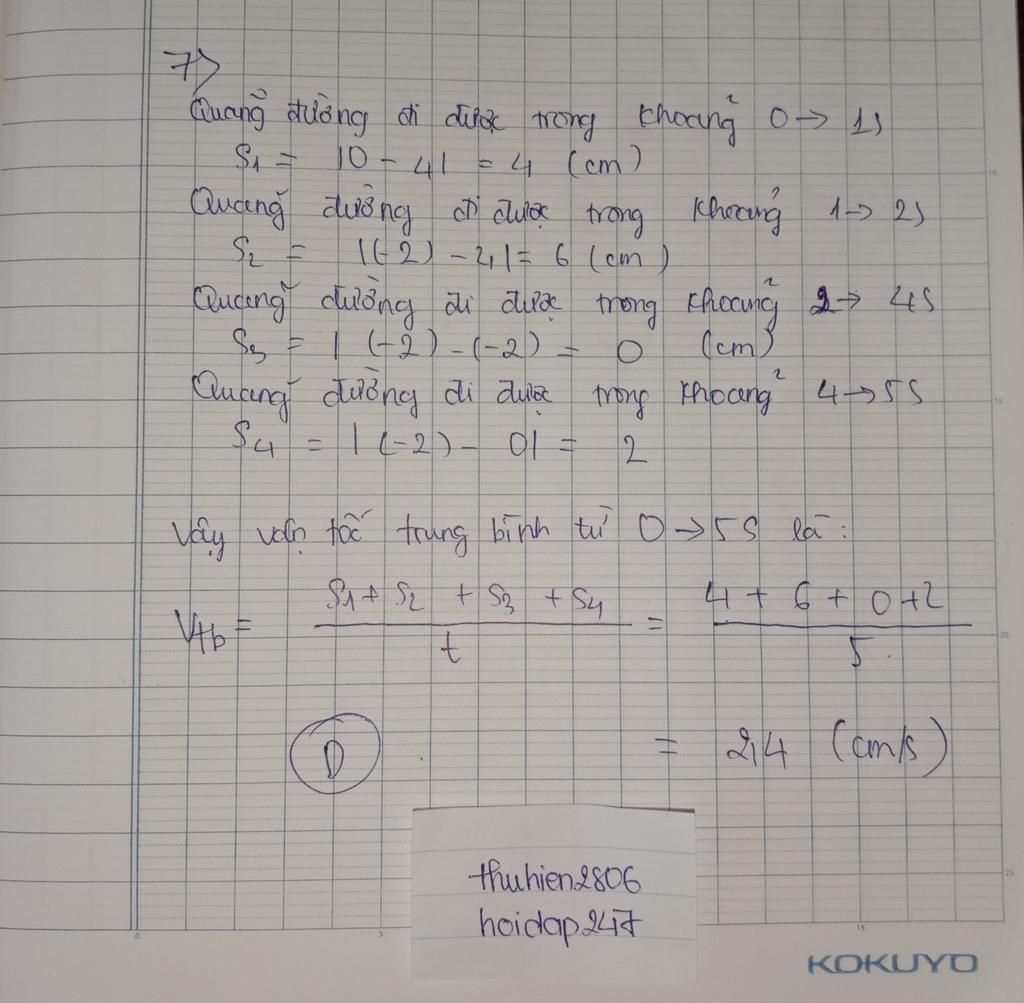 7>
Quãng đường đi được trong khoảng 0 → 1s
S1 = |0 - 4| = 4 (cm)
Quãng đường đi được trong khoảng 1 → 2s
S2 = |(-2) - 4| = 6 (cm)
Quãng đường đi được trong khoảng 2 → 4s
S3 = | (-2) - (-2) = 0 (cm)
Quãng đường đi được trong khoảng 4 → 5s
S4 = | (-2) - 0| = 2
Vậy vận tốc trung bình từ 0 → 5s là:
Vtb = (S1 + S2 + S3 + S4)/t = (4 + 6 + 0 + 2)/5
D = 2,4 (cm/s)
thuhien2806
hoidap247
KOKUYO
0 5 15
10
15
20
25